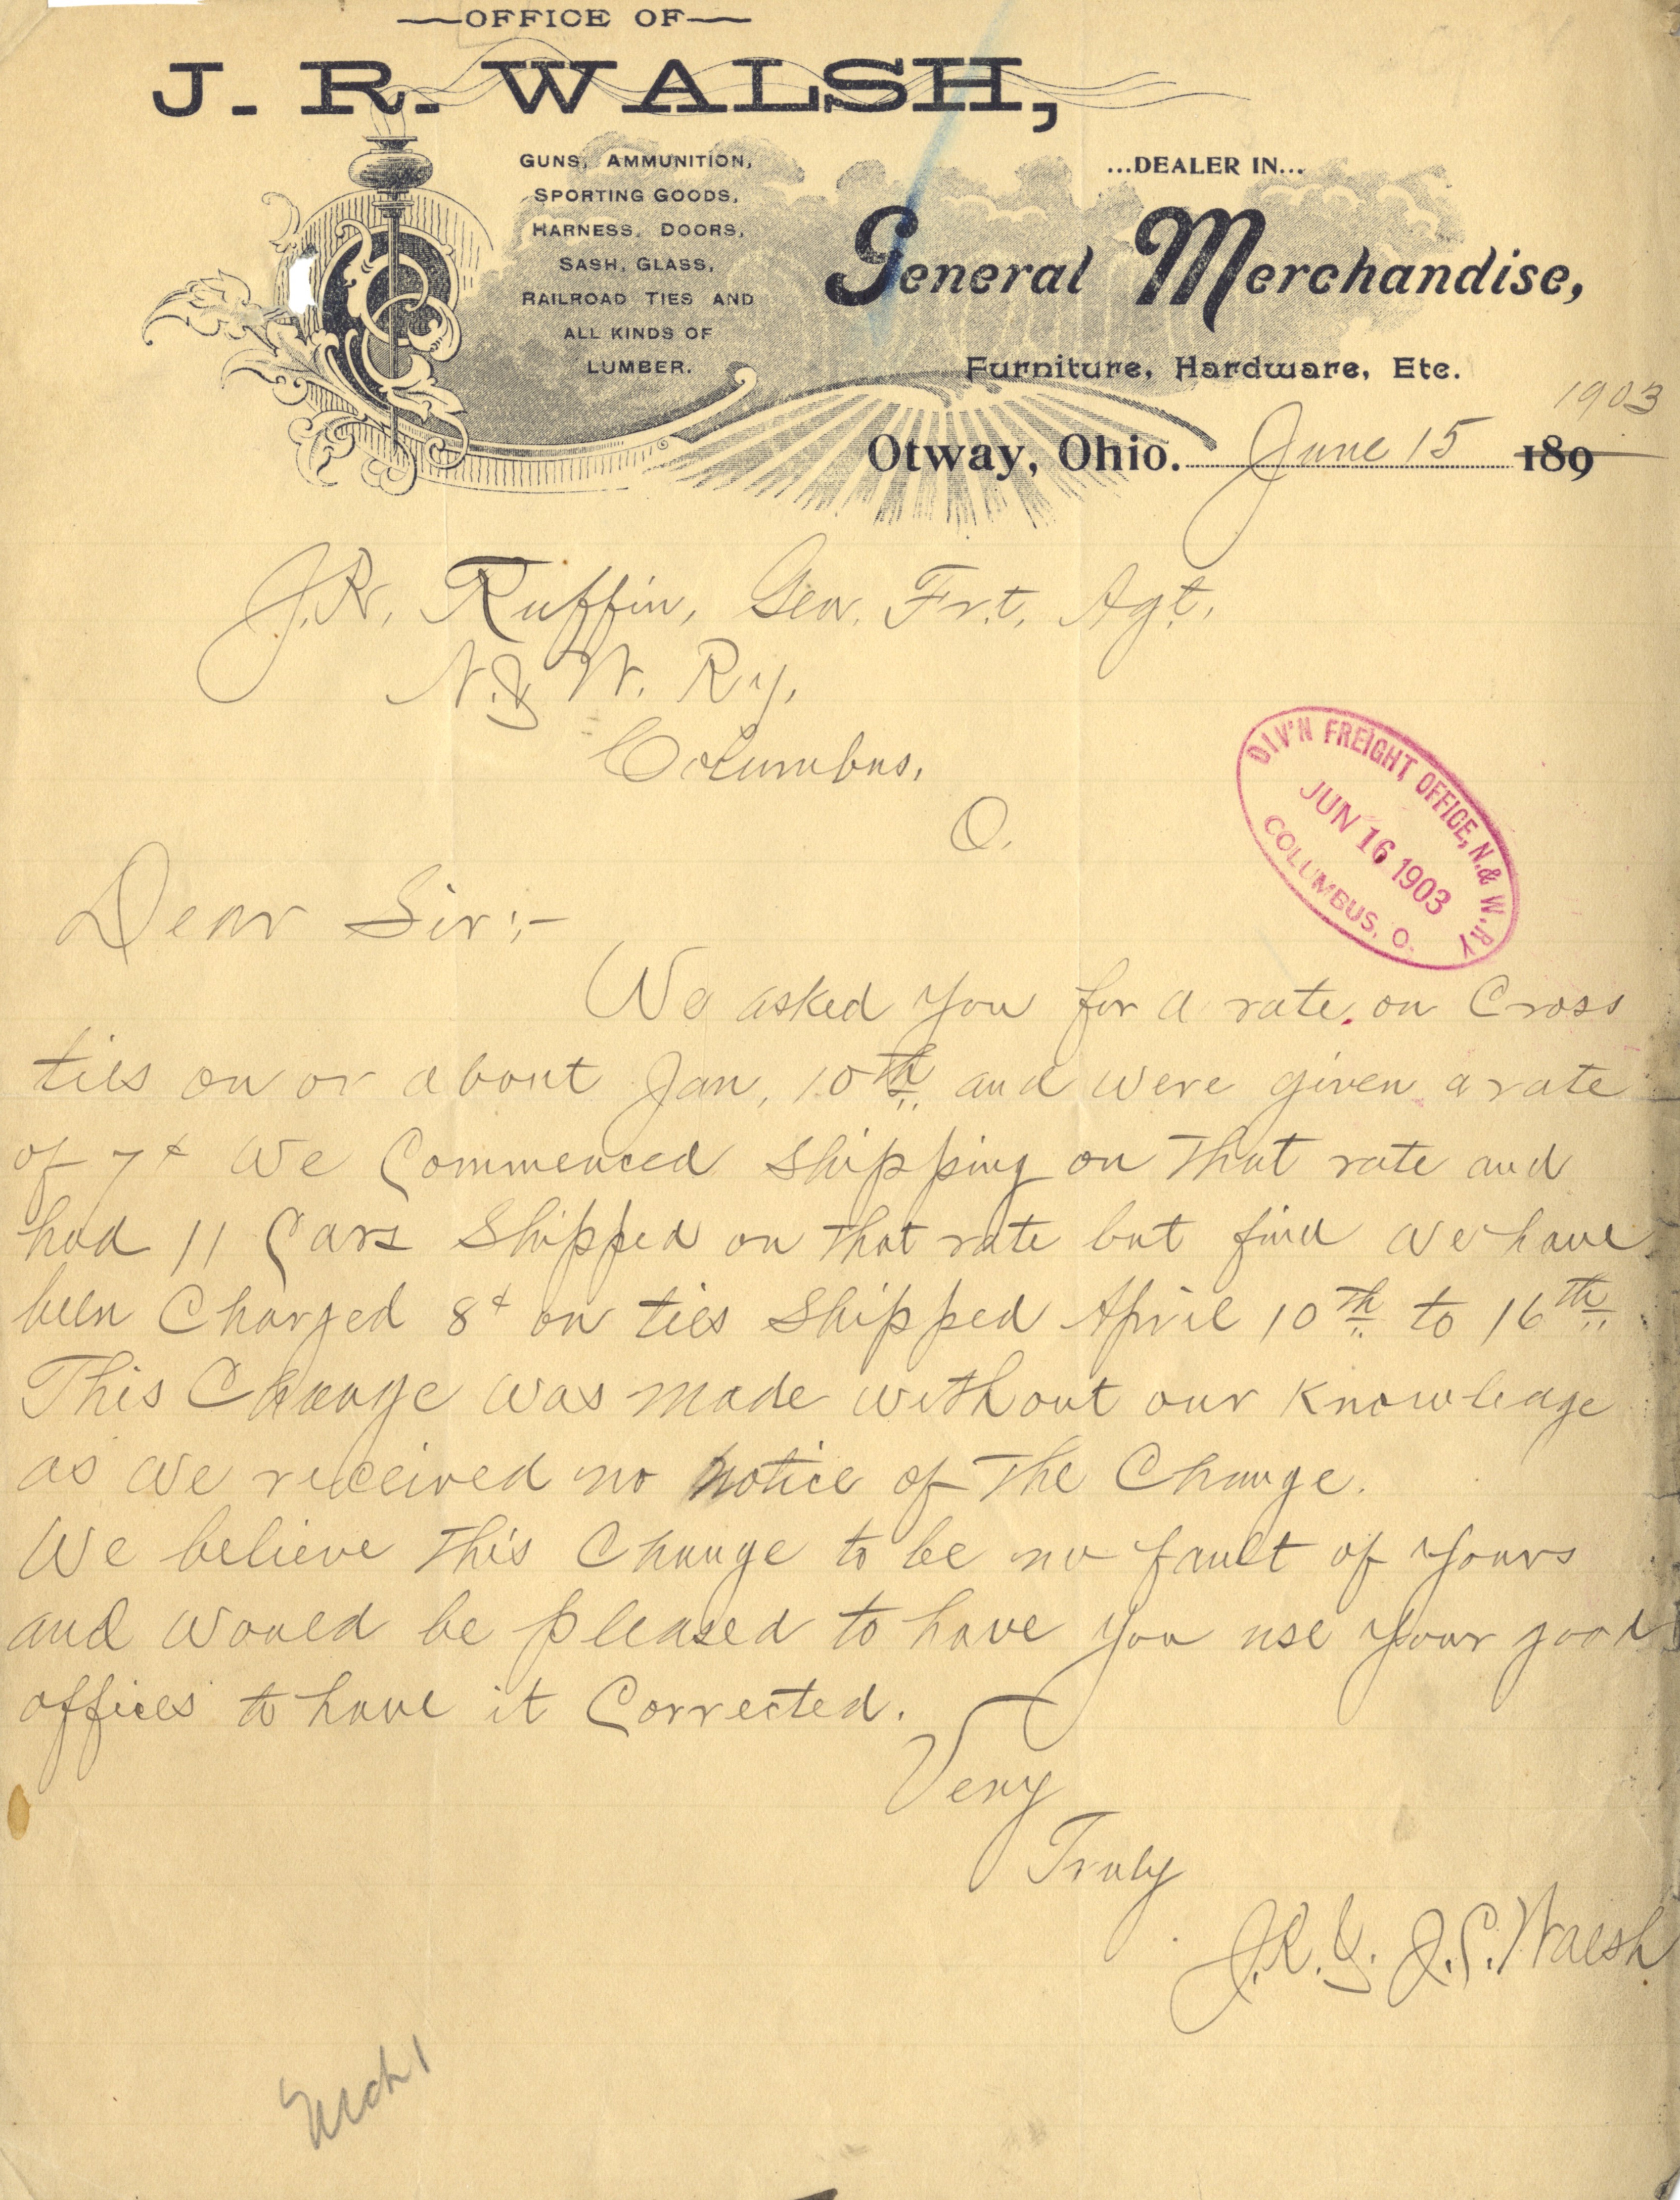 OFFICE OF
J. R. WALSH,
GUNS, AMMUNITION,
SPORTING GOODS,
HARNESS, DOORS,
SASH, GLASS,
RAILROAD TIES AND
ALL KINDS OF
LUMBER.
...DEALER IN...
General Merchandise,
Furniture, Hardware, Etc.
1903
Otway, Ohio. June 15 189
J.R. Ruffin, Gen. Frt. Agt.
N. & W. Ry.
Columbus,
O.
DIV'N FREIGHT OFFICE, N. & W. RY
JUN 16 1903
COLUMBUS, O.
Dear Sir:-
We asked you for a rate on Cross
ties on or about Jan. 10th and were given a rate
of 7¢ We Commenced Shipping on that rate and
had 11 Cars Shipped on that rate but find we have
been Charged 8¢ on ties Shipped April 10th to 16th
This Change was made without our knowledge
as we received no notice of the Change.
We believe this Change to be no fault of yours
and would be pleased to have you use your good
offices to have it Corrected.
Very
Truly
J.R. & J.C. Walsh